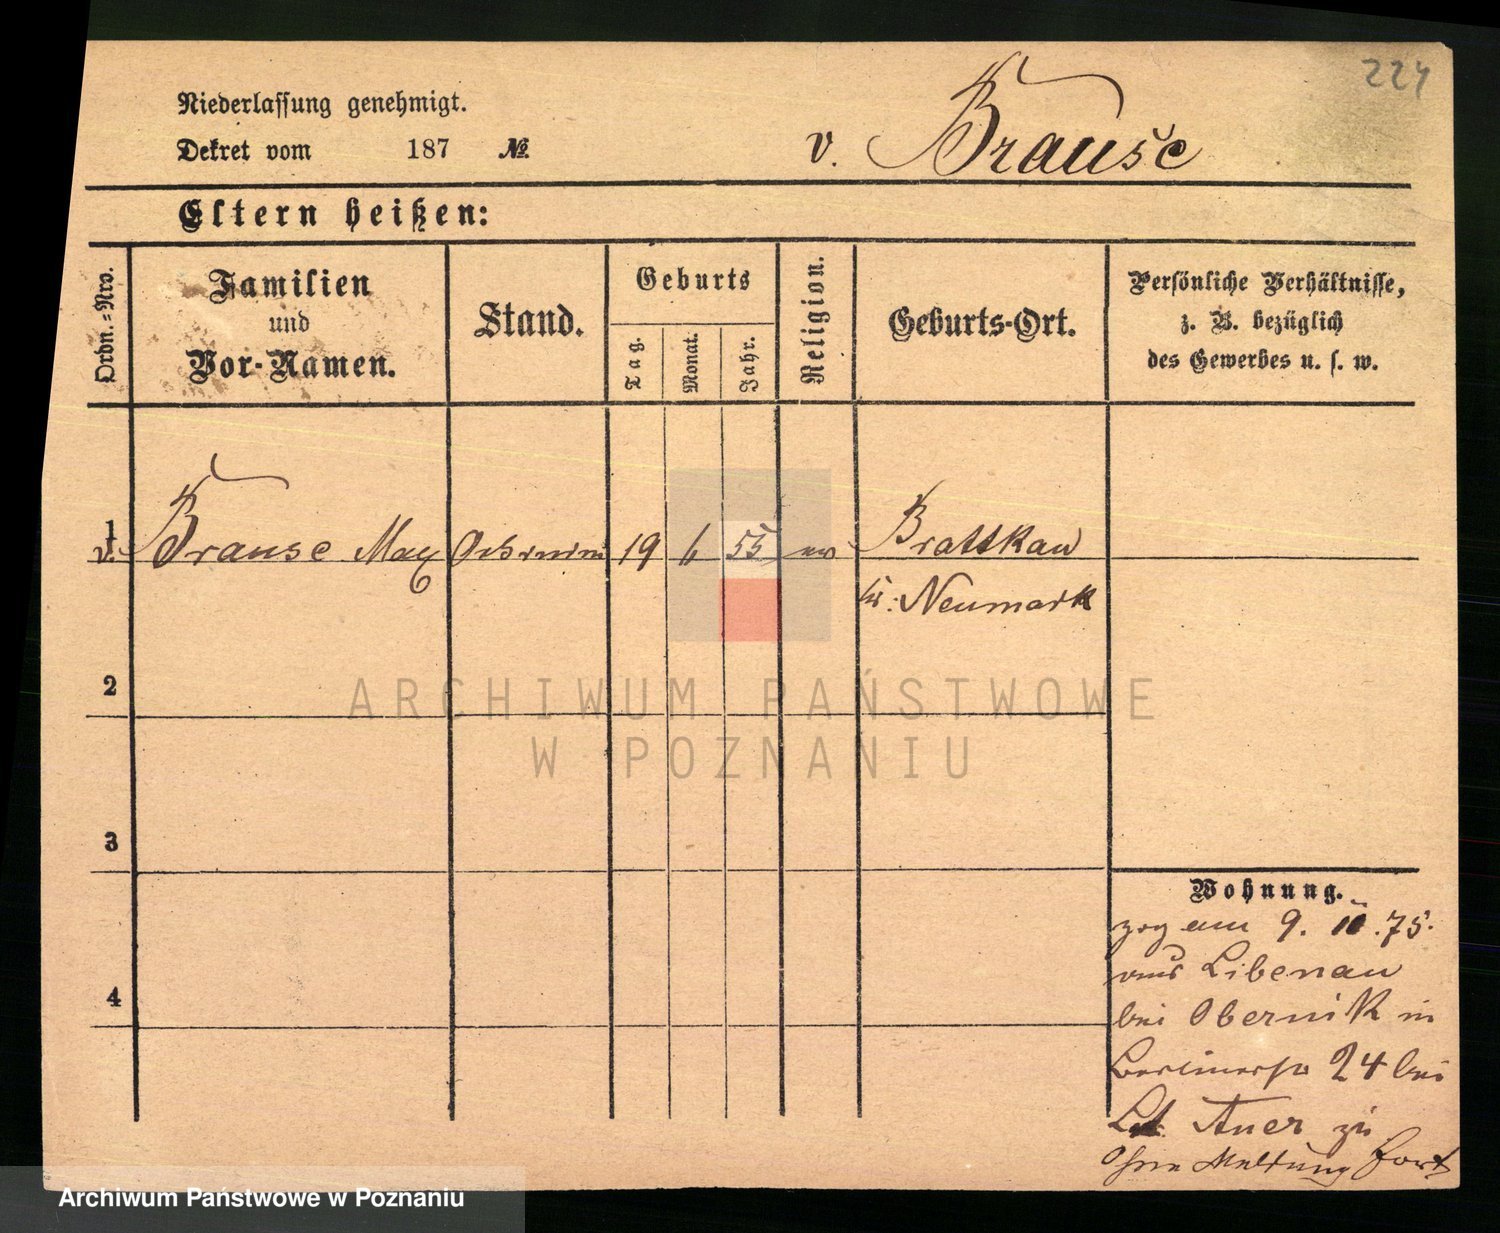 224
Niederlassung genehmigt.
Dekret vom 187 №
v. Brause
Eltern heißen:
Ordn.-Nro.
Familien
und
Vor-Namen.
Stand.
Geburts
Tag.
Monat.
Jahr.
Religion.
Geburts-Ort.
Persönliche Verhältnisse,
z. B. bezüglich
des Gewerbes u. s. w.
1
v. Brause Max 19 6 55 ev Brattkau
Kr: Neumark
2
3
4
Wohnung.
zog am 9. 75.
aus Libenau
bei Obernik in
Berlinerstr 24 bei
Lt. Auer zu
Ohne Meldung fort
ARCHIWUM PAŃSTWOWE
W POZNANIU
Archiwum Państwowe w Poznaniu